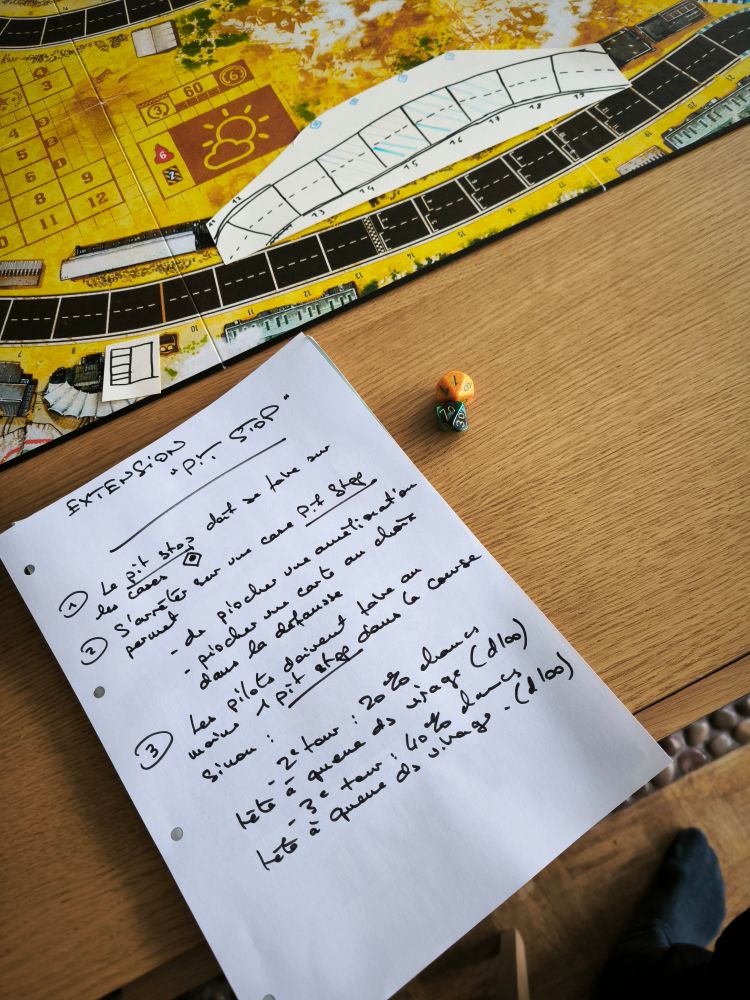 60
3
6
4
3
4
5
6
9
8
11
12
6
2
12
13
14
15
16
17
18
19
7
10
11
12
13
14
15
16
17
18
19
20
21
1
30
EXTENSION
"PIT STOP"
① Le pit stop doit se faire sur
les cases
② S'arrêter sur une case Pit Stop
permet
- de piocher une amélioration
- piocher une carte au choix
dans la défausse
③ Les pilotes doivent faire au
moins 1 pit stop dans la course
Sinon :
- 2e tour : 20% chances
tête à queue ds virage (d100)
- 3e tour : 40% chances
tête à queue ds virage - (d100)